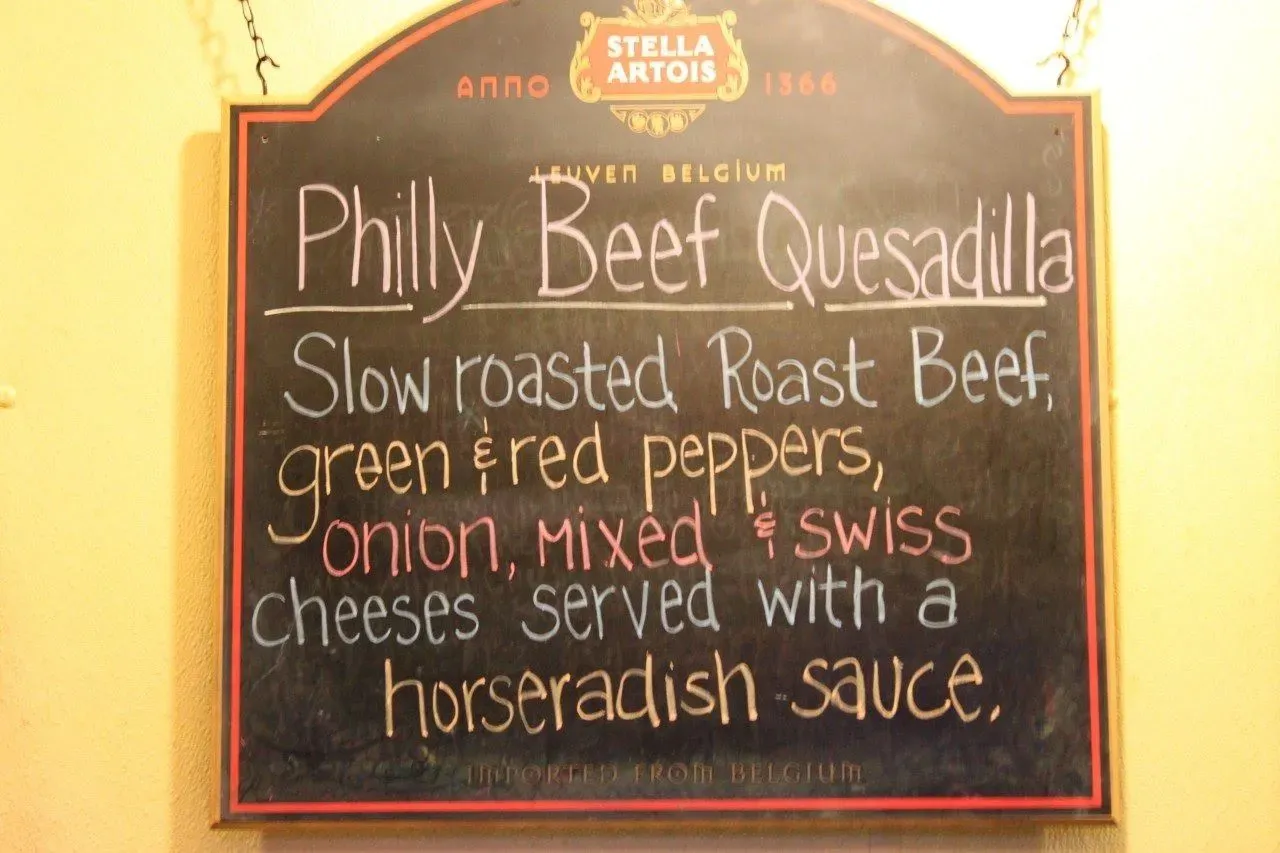 STELLA
ARTOIS
ANNO 1366
LEUVEN BELGIUM
Philly Beef Quesadilla
Slow roasted Roast Beef,
green & red peppers,
onion, mixed & swiss
cheeses served with a
horseradish sauce.
IMPORTED FROM BELGIUM